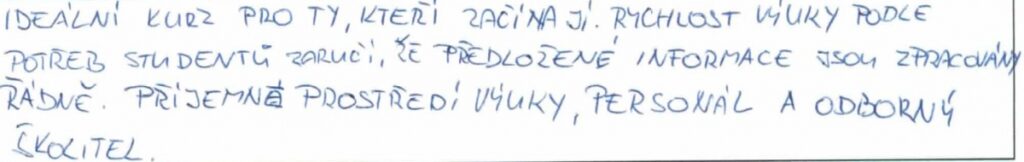 IDEÁLNÍ KURZ PRO TY, KTEŘÍ ZAČÍNAJÍ. RYCHLOST VÝUKY PODLE
POTŘEB STUDENTŮ ZARUČÍ, ŽE PŘEDLOŽENÉ INFORMACE JSOU ZPRACOVÁNY
ŘÁDNĚ. PŘÍJEMNÉ PROSTŘEDÍ VÝUKY, PERSONÁL A ODBORNÝ
ŠKOLITEL.